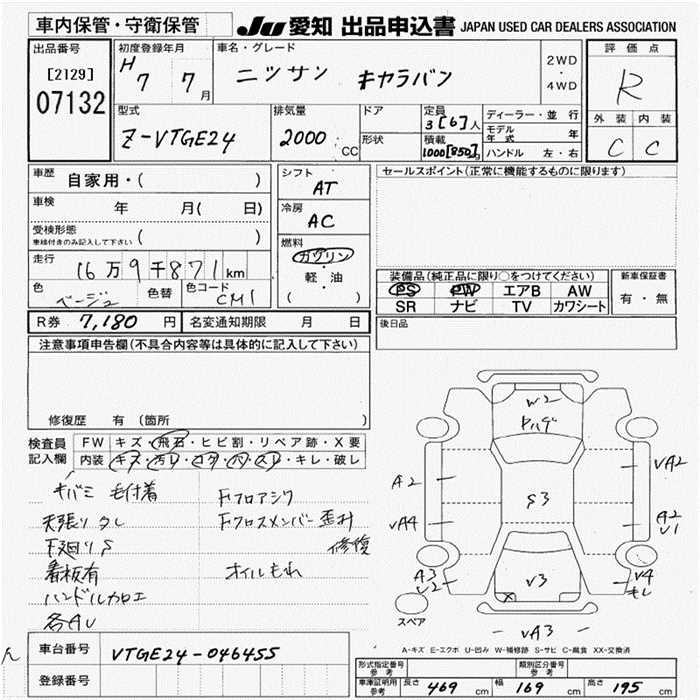 車内保管・守衛保管 JU 愛知 出品申込書 JAPAN USED CAR DEALERS ASSOCIATION
出品番号 [2129] 07132
初度登録年月 H 7 7月
車名・グレード ニツサン キャラバン 2WD・4WD
評価点 R
型式 Z-VTGE24
排気量 2000 CC
ドア
形状
定員 3[6]人
積載 1000[850]g
ディーラー・並行
モデル年式 年
ハンドル 左・右
外装 内装
C C
車歴 自家用・( )
車検 年 月( 日)
受検形態 車検付きのみ記入して下さい ( )
走行 16万9千871km
色 ベージュ 色替 色コード CM1
シフト AT
冷房 AC
燃料 ガソリン
軽・油
( )
セールスポイント(正常に機能するものに限ります)
装備品(純正品に限り○をつけてください)
PS PW エアB AW
SR ナビ TV カワシート
新車保証書
有・無
R券 7,180円 名変通知期限 月 日
後日品
注意事項申告欄(不具合内容等は具体的に記入して下さい)
修復歴 有 (箇所 )
検査員記入欄
FW キズ・飛石・ヒビ割・リペア跡・X要
内装 キズ・汚レ・コゲ・穴・スレ・キレ・破レ
キバミ 毛付着
天張りタレ
下廻りS
看板有
ハンドルカロエ
各AU
Fフロアシワ
Fクロスメンバー歪み
修復
オイルもれ
W2
S3
V3
A2
VA4
A3
V2
VA2
A2
V1
V4
キレ
スペア
VA3
A-キズ E-エクボ U-凹み W-補修跡 S-サビ C-腐食 XX-交換済
車台番号 VTGE24-046455
登録番号
形式指定番号 参考
類別区分番号 参考
車庫証明用 参考 長さ 469cm 幅 169cm 高さ 195cm